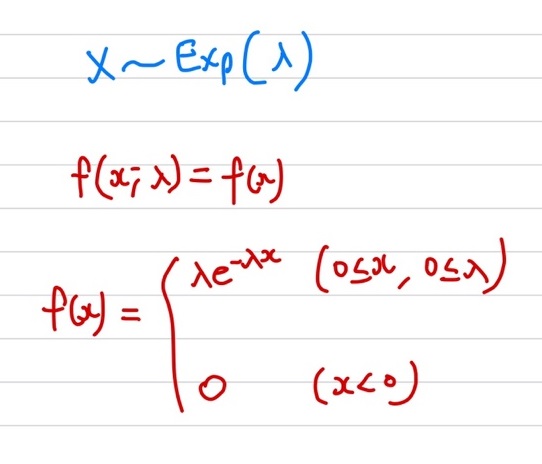 X ~ Exp(λ)
f(x; λ) = f(x)
f(x) = { λe^{-λx} (0≤x, 0≤λ)
0 (x<0)